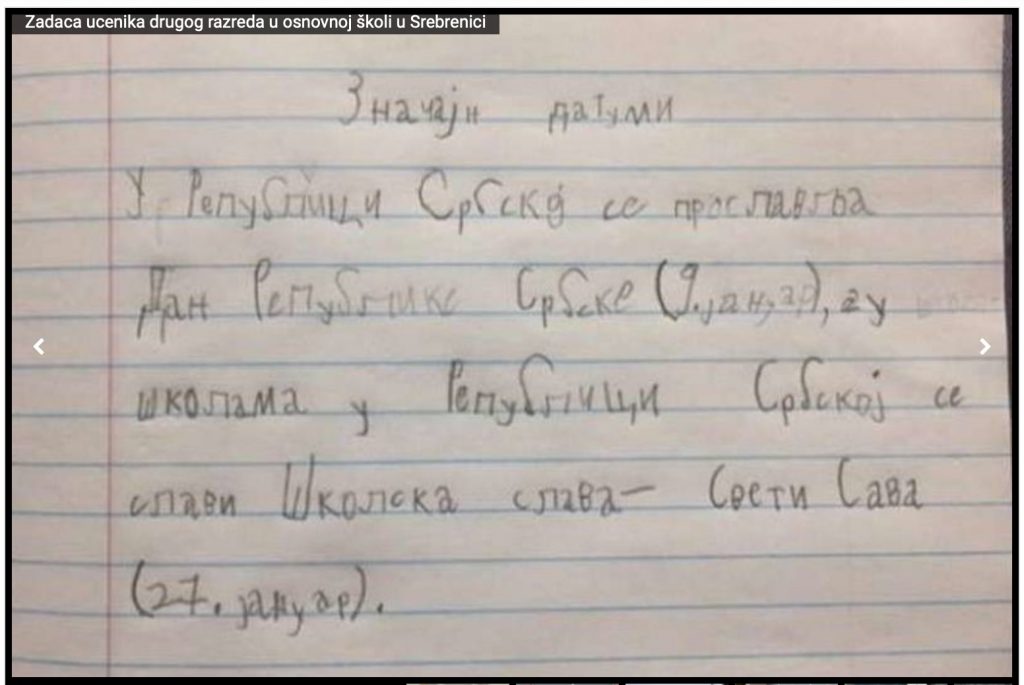 Zadaca ucenika drugog razreda u osnovnoj školi u Srebrenici
Значајн датуми
У Републици Србској се прославља
Дан Републике Србске (9. јануар), а у
школама у Републици Србској се
слави Школска слава – Свети Сава
(27. јануар).